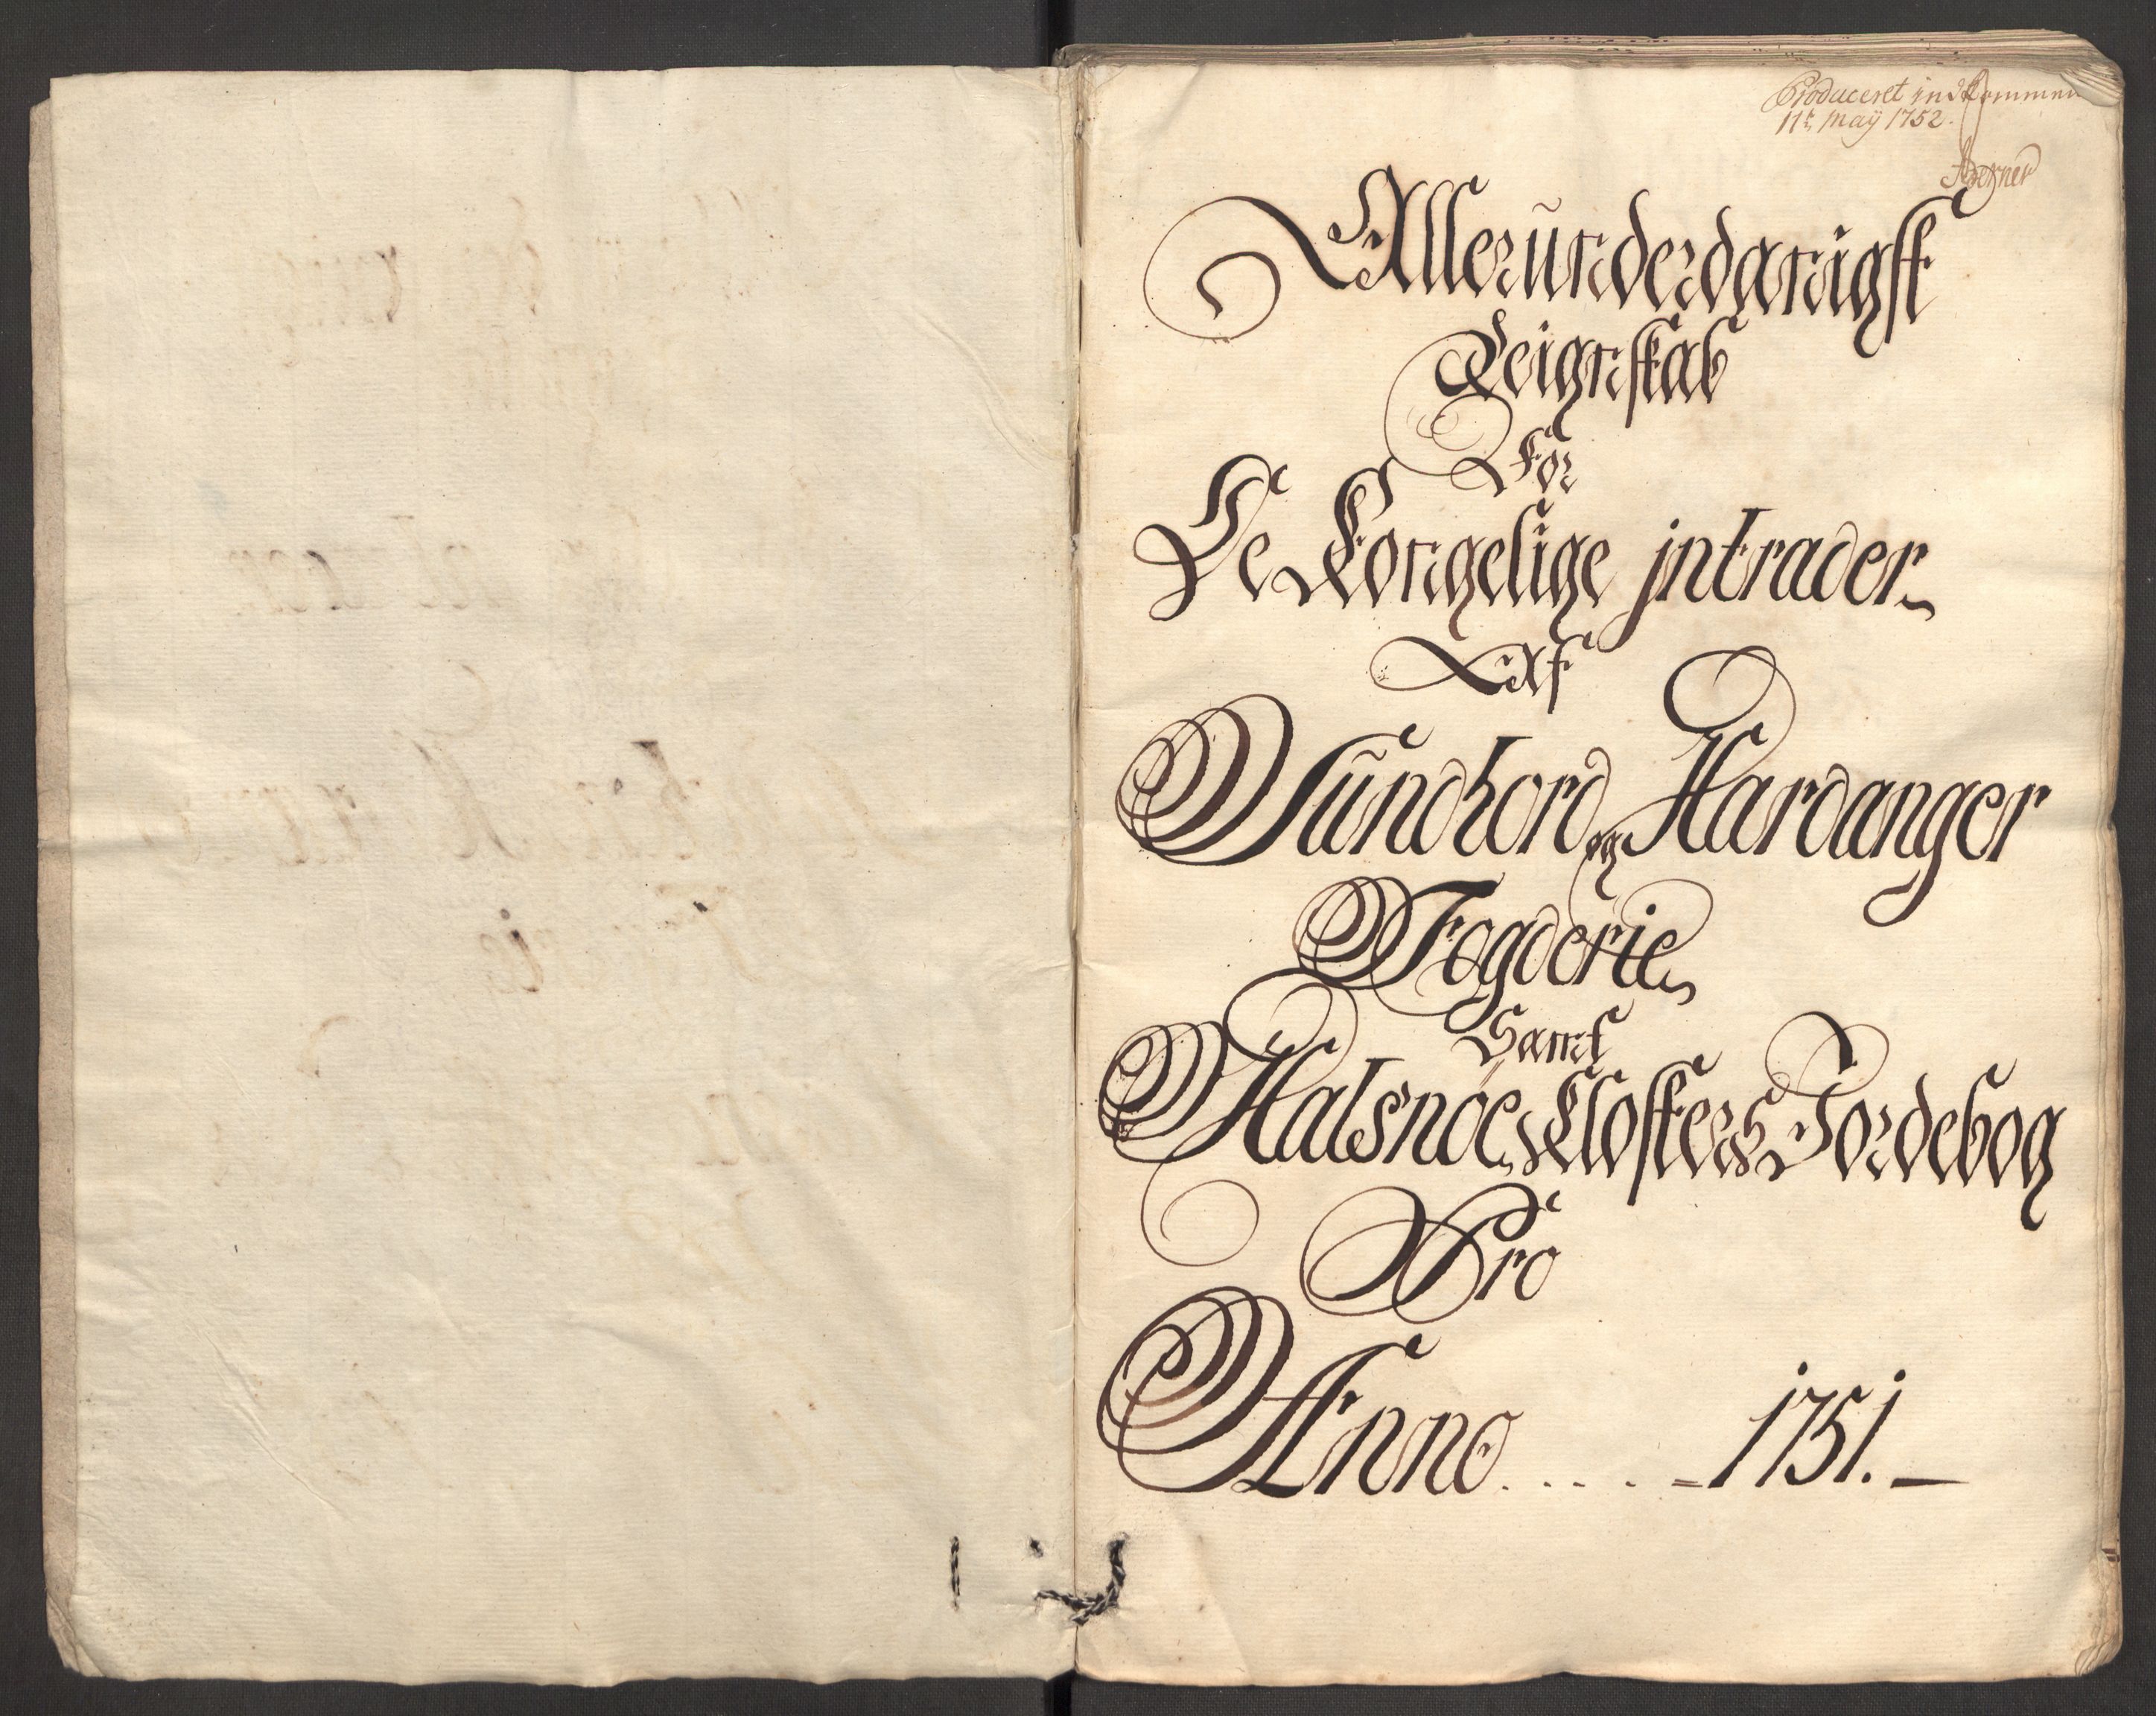 Produceret indkommen
11te Maÿ 1752.
Allerũnderdanigst
Reignskab
For
De Kongelige jntrader
Af
Sũndhord og Hardanger
Fogderie
Samt
Halsnöe Klosters Jordebog
Pro
Anno . . . . = 1751. —